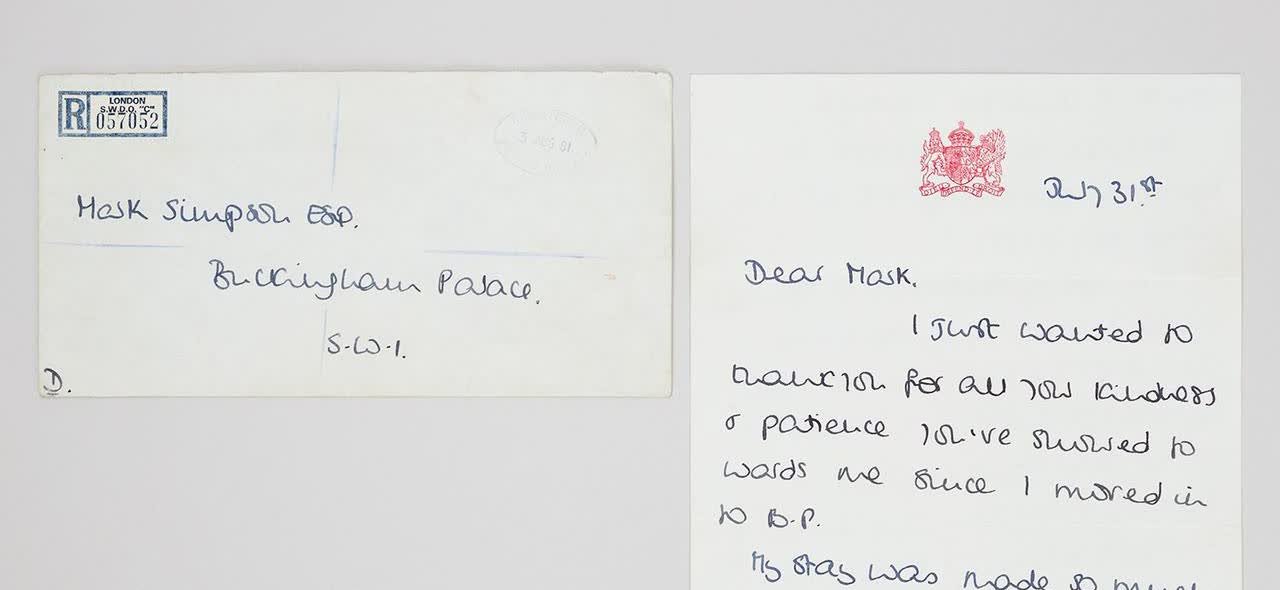 R
LONDON
S.W.D.O. "C"
057052
3 AUG 81
Mark Simpson ESQ.
Buckingham Palace.
S.W.1.
D.
July 31st
Dear Mark.
I just wanted to
thank you for all your kindness
& patience you've showed to
wards me since I moved in
to B.P.
My stay was made so much